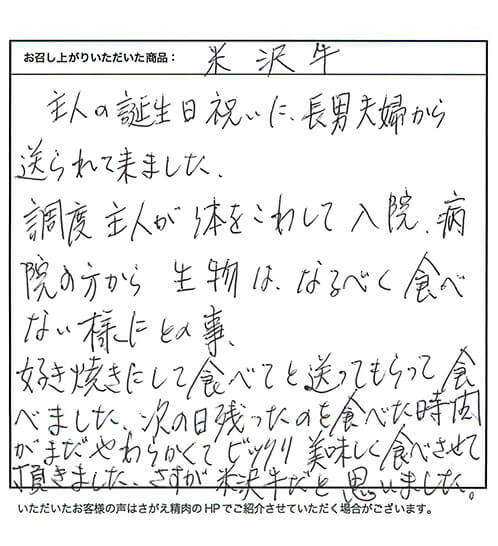 お召し上がりいただいた商品： 米沢牛
主人の誕生日祝いに、長男夫婦から
送られて来ました、
調度主人が体をこわして入院、病
院の方から生物は、なるべく食べ
ない様にとの事、
好き焼きにして食べてと送ってもらって食
べました、次の日残ったのを食べた時肉
がまだやわらかくてビックリ美味しく食べさせて
頂きました、さすが米沢牛だと思いました。
いただいたお客様の声はさがえ精肉のHPでご紹介させていただく場合がございます。